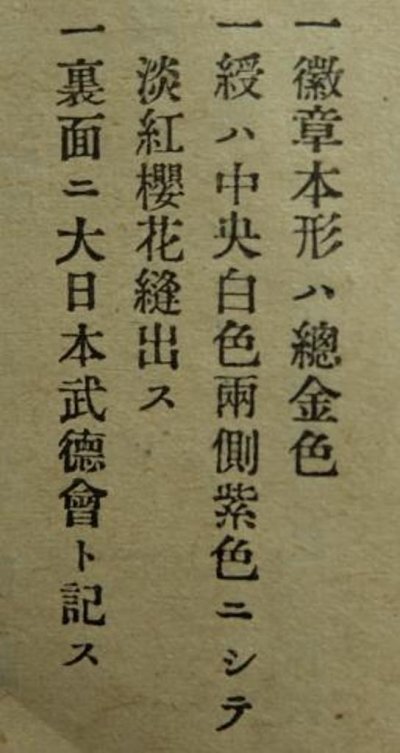 一徽章本形ハ總金色
一綬ハ中央白色兩側紫色ニシテ
淡紅櫻花縫出ス
一裏面ニ大日本武德會ト記ス